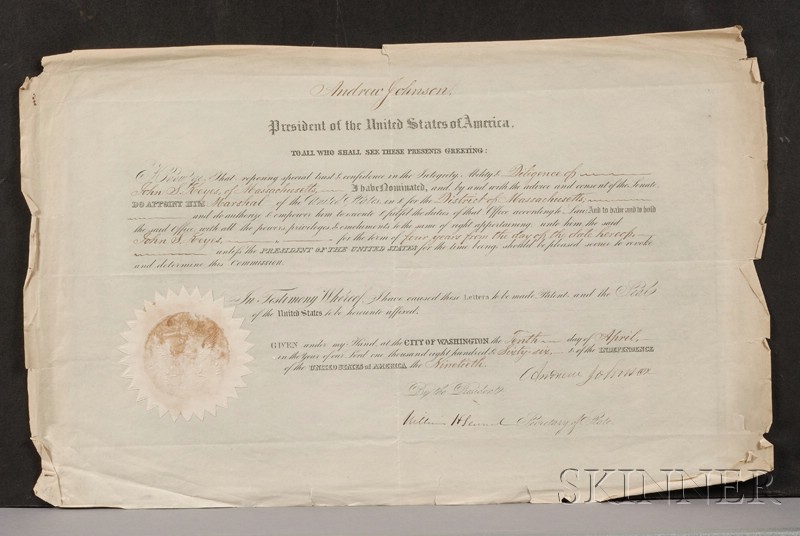 Andrew Johnson.
President of the United States of America.
TO ALL WHO SHALL SEE THESE PRESENTS GREETING:
Know Ye, That reposing special trust & confidence in the Integrity, Ability & Diligence of
John S. Keyes, of Massachusetts, I have Nominated, and by and with the advice and consent of the Senate
DO APPOINT HIM Marshal of the United States in & for the District of Massachusetts,
and do authorize & empower him to execute & fulfil the duties of that Office according to Law, And to have and to hold
the said Office with all the powers, privileges & emoluments to the same of right appertaining unto him the said
John S. Keyes, for the term of four years from the day of the date hereof,
unless the PRESIDENT OF THE UNITED STATES for the time being should be pleased sooner to revoke
and determine this Commission.
In Testimony Whereof, I have caused these Letters to be made Patent, and the Seal
of the United States to be hereunto affixed.
GIVEN under my Hand, at the CITY OF WASHINGTON, the Tenth day of April,
in the Year of our Lord one thousand eight hundred & Sixty-six, & of the INDEPENDENCE
of the UNITED STATES OF AMERICA, the Ninetieth.
Andrew Johnson
By the President
William H. Seward Secretary of State.
SKINNER